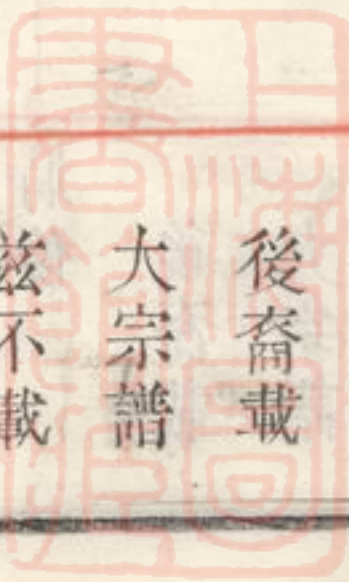 後裔載
大宗譜
茲不載